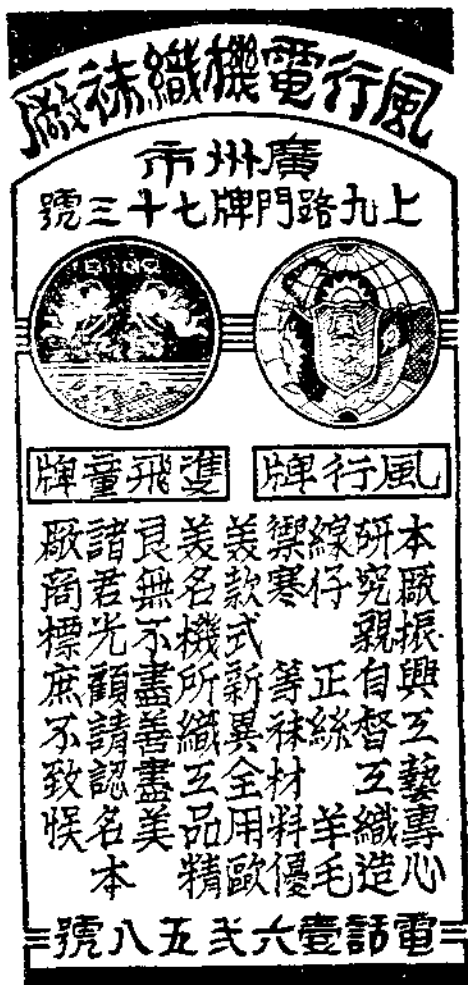 風行電機織袜厰
廣州市
上九路門牌七十三號
風行牌
雙飛童牌
本厰振興工藝專心
研究親自督工織造
線仔 正絲 羊毛
禦寒 等袜材料優
美款式新異全用歐
美名機所織工品精
良無不盡善盡美
諸君光顧請認名本
厰商標庶不致悞
電話壹六弍五八號